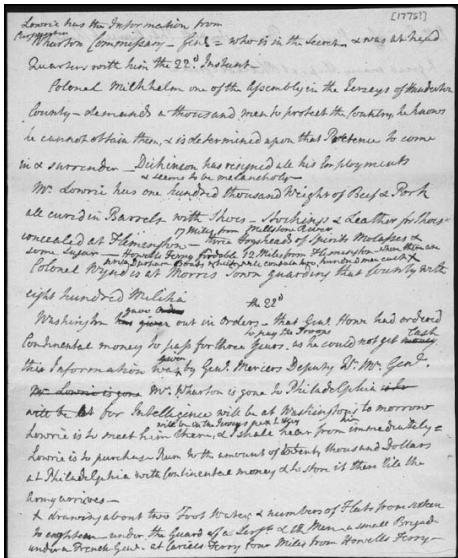 [1778?]
Lowrie has the Information from
Wharton Commissary - Genl = who is in the Secret - & was at head
Quarters with him the 22d Instant
Colonel Milkhelm one of the Assembly in the Jerseys of Hunderton
County - demands a thousand men to protect the Country, he knows
he cannot obtain them, & is determined upon that Pretence to come
in & surrender - Dickinson has resigned all his Employments
& seems to be melancholy -
Mr. Lowrie has one hundred thousand Weight of Beef & Pork
all cured in Barrels with Shoes - Stockings & Leather for Shoes
17 Miles from Millstone River
concealed at Flemington - three Hogsheads of Spirits Molasses &
some Sugar - Howells Ferry fordable 12 Miles from Flemington - when there are
Durham Boats which will contain two hundred men each +
Colonel Wynds is at Morris Town guarding that County with
eight hundred Militia
the 22d
Washington has given out in Orders - that Genl. Howe had ordered
to pay the Troops
Continental money to pass for three Years. as he could not get money
Cash
this Information was by Genl. Mercers Deputy Qr. Mr. Genl.
given
Mr. Lowrie is gone Mr. Wharton is gone to Philadelphia
our Intelligence will be at Washington's to morrow
will be in the Jerseys
Lowrie is to meet him there, & I shall hear from immediately =
him
Lowrie is to purchase Rum with the amount of twenty thousand Dollars
at Philadelphia with Continental money & to store it there till the
Army arrives -
+ drawing about two Foot Water, & numbers of Flats from sixteen
to eighteen - under the Guard of a Serjt & Men - a small Brigade
under a French Genl. at Coriels Ferry four Miles from Howells Ferry -